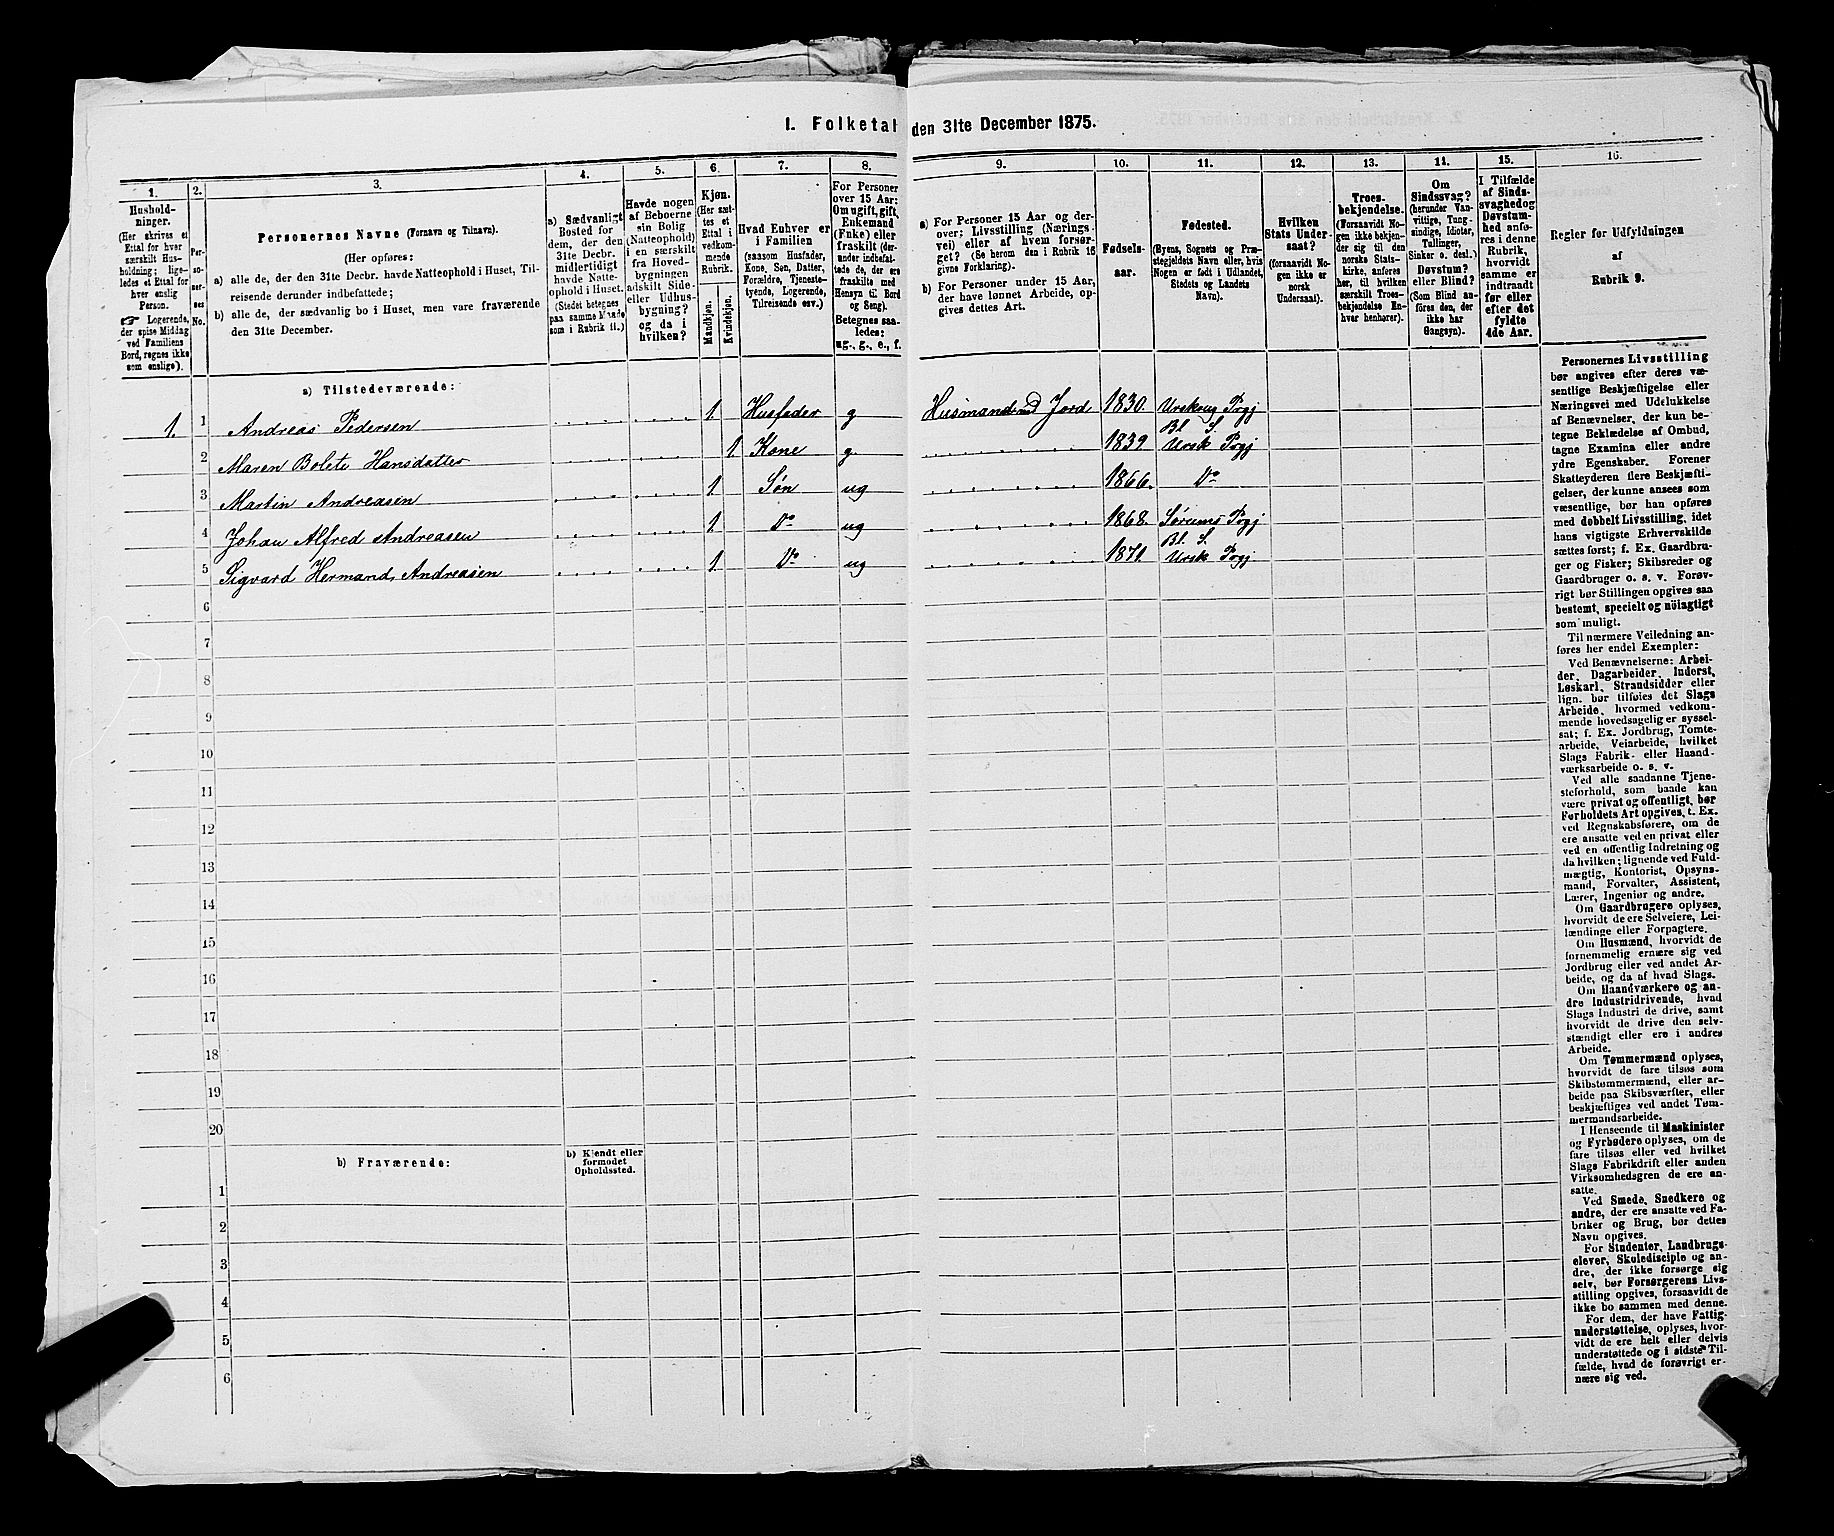 I. Folketal den 31te December 1875.
1.
Hushold-
ninger.
(Her skrives et
Ettal for hver
særskilt Hus-
holdning; lige-
ledes et Ettal for
hver enslig
Person.
☞ Logerende,
der spise Middag
ved Familiens
Bord, regnes ikke
som enslige).
2.
Per-
so-
ner-
nes
No.
3.
Personernes Navne (Fornavn og Tilnavn).
(Her opføres:
a) alle de, der den 31te Decbr. havde Natteophold i Huset, Til-
reisende derunder indbefattede;
b) alle de, der sædvanlig bo i Huset, men vare fraværende
den 31te December.
4.
a) Sædvanligt
Bosted for
dem, der den
31te Decbr.
midlertidigt
havde Natte-
ophold i Huset.
(Stedet betegnes
paa samme Maade
som i Rubrik 11.)
5.
Havde nogen
af Beboerne
sin Bolig
(Natteophold)
i en særskilt
fra Hoved-
bygningen
adskilt Side-
eller Udhus-
bygning?
og da i
hvilken?
6.
Kjøn.
(Her sæt-
tes et
Ettal i
vedkom-
mende
Rubrik.
Mandkjøn.
Kvindekjøn.
7.
Hvad Enhver er
i Familien
(saasom Husfader,
Kone, Søn, Datter,
Forældre, Tjeneste-
tyende, Logerende,
Tilreisende osv.)
8.
For Personer
over 15 Aar:
Om ugift, gift,
Enkemand
(Enke) eller
fraskilt (der-
under indbefat-
tede de, der ere
fraskilte med
Hensyn til Bord
og Seng).
Betegnes saa-
ledes:
ug., g., e., f.
9.
a) For Personer 15 Aar og der-
over; Livsstilling (Nærings-
vei) eller af hvem forsør-
get? (Se herom den i Rubrik 16
givne Forklaring).
b) For Personer under 15 Aar,
der have lønnet Arbeide, op-
gives dettes Art.
10.
Fødsels-
aar.
11.
Fødested.
(Byens, Sognets og Præ-
stegjeldets Navn eller, hvis
Nogen er født i Udlandet,
Stedets og Landets
Navn).
12.
Hvilken
Stats Under-
saat?
(forsaavidt No-
gen ikke er
norsk
Undersaat).
13.
Troes-
bekjendelse.
(Forsaavidt No-
gen ikke bekjen-
der sig til den
norske Stats-
kirke, anføres
her, til hvilken
særskilt Troes-
bekjendelse En-
hver henhører).
14.
Om
Sindssvag?
(herunder Van-
vittige, Tung-
sindige, Idioter,
Tullinger,
Sinker o. desl.)
Døvstum?
eller Blind?
(Som Blind an-
føres den, der
ikke har
Gangsyn).
15.
I Tilfælde
af Sinds-
svaghed og
Døvstum-
hed anfø-
res i denne
Rubrik,
hvorvidt
samme er
indtraadt
før eller
efter det
fyldte
4de Aar.
16.
Regler for Udfyldningen
af
Rubrik 9.
a) Tilstedeværende:
1. 1 Andreas Pedersen 1. Husfader g Husmand med Jord 1830. Urskoug Prgj
2 Maren Bolete Hansdatter 1 Kone g. 1839. Bl. S. Ursk Prgj
3 Martin Andreasen 1. Søn ug 1866. Do
4 Johan Alfred Andreasen 1. Do ug 1868. Sørums Prgj
5 Sigvard Hermand Andreasen 1. Do ug 1871. Bl. S. Ursk Prgj
6
7
8
9
10
11
12
13
14
15
16
17
18
19
20
b) Fraværende:
b) Kjendt eller
formodet
Opholdssted.
1
2
3
4
5
6
Personernes Livsstilling
bør angives efter deres væ-
sentlige Beskjæftigelse eller
Næringsvei med Udelukkelse
af Benævnelser, der kun be-
tegne Beklædelse af Ombud,
tagne Examina eller andre
ydre Egenskaber. Forener
Skatteyderen flere Beskjæfti-
gelser, der kunne ansees som
væsentlige, bør han opføres
med dobbelt Livsstilling, idet
hans vigtigste Erhvervskilde
sættes først; f. Ex. Gaardbru-
ger og Fisker; Skibsreder og
Gaardbruger o. s. v. Forøv-
rigt bør Stillingen opgives saa
bestemt, specielt og nöiagtigt
som muligt.
Til nærmere Veiledning an-
føres her endel Exempler:
Ved Benævnelserne: Arbei-
der, Dagarbeider, Inderst,
Løskarl, Strandsidder eller
lign. bør tilføies det Slags
Arbeide, hvormed vedkom-
mende hovedsagelig er syssel-
sat; f. Ex. Jordbrug, Tomte-
arbeide, Veiarbeide, hvilket
Slags Fabrik- eller Haand-
værksarbeide o. s. v.
Ved alle saadanne Tjene-
steforhold, som baade kan
være privat og offentligt, bør
Forholdets Art opgives, t. Ex.
ved Regnskabsførere, om de
ere ansatte ved en privat eller
ved en offentlig Indretning og
da hvilken; lignende ved Fuld-
mægtig, Kontorist, Opsyns-
mand, Forvalter, Assistent,
Lærer, Ingeniør og andre.
Om Gaardbrugere oplyses,
hvorvidt de ere Selveiere, Lei-
lændinge eller Forpagtere.
Om Husmænd, hvorvidt de
fornemmelig ernære sig ved
Jordbrug eller ved andet Ar-
beide, og da af hvad Slags.
Om Haandværkere og an-
dre Industridrivende, hvad
Slags Industri de drive, samt
hvorvidt de drive den selv-
stændigt eller ere i andres
Arbeide.
Om Tømmermænd oplyses,
hvorvidt de fare tilsøs som
Skibstømmermænd, eller ar-
beide paa Skibsværfter, eller
beskjæftiges ved andet Tøm-
mermandsarbeide.
I Henseende til Maskinister
og Fyrbødere oplyses, om de
fare tilsøs eller ved hvilket
Slags Fabrikdrift eller anden
Virksomhedsgren de ere an-
satte.
Ved Smede, Snedkere og
andre, der ere ansatte ved Fa-
briker og Brug, bør dettes
Navn opgives.
For Studenter, Landbrugs-
elever, Skoledisciple og an-
dre, der ikke forsørge sig
selv, bør Forsørgerens Livs-
stilling opgives, forsaavidt de
ikke bo sammen med denne.
For dem, der have Fattig-
understøttelse, oplyses, hvor-
vidt de ere helt eller delvis
understøttede og i sidste Til-
fælde, hvad de forøvrigt er-
nære sig ved.